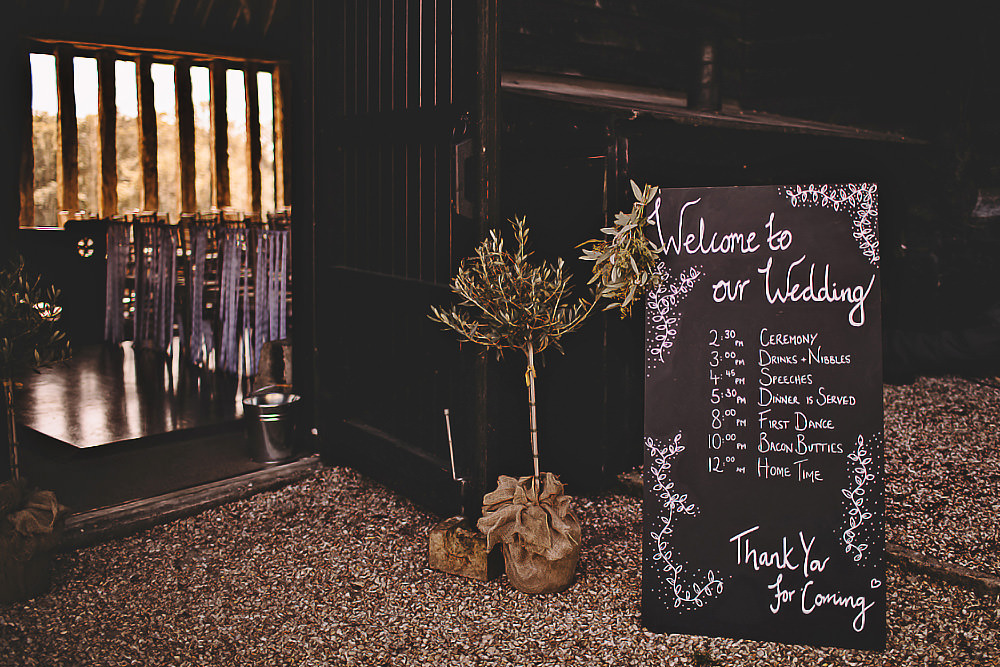 Welcome to
our Wedding
2:30 PM Ceremony
3:00 PM Drinks + Nibbles
4:45 PM Speeches
5:30 PM Dinner is Served
8:00 PM First Dance
10:00 PM Bacon Butties
12:00 AM Home Time
Thank You
for Coming